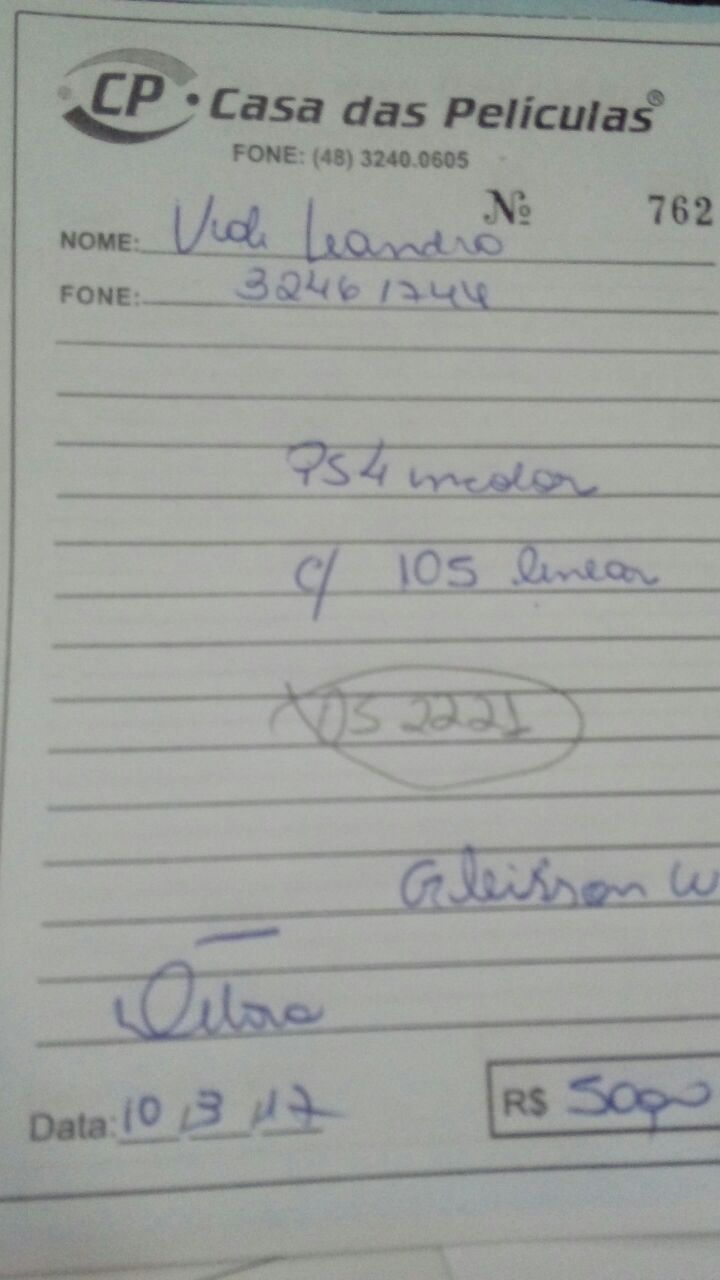 CP • Casa das Películas®
FONE: (48) 3240.0605
Nº 762
NOME: Vidi Leandro
FONE: 3246 1744
PS4 incolor
c/ 105 linear
DS 2221
Gleisson W
Débora
Data: 10 / 3 / 17
R$ 50,00